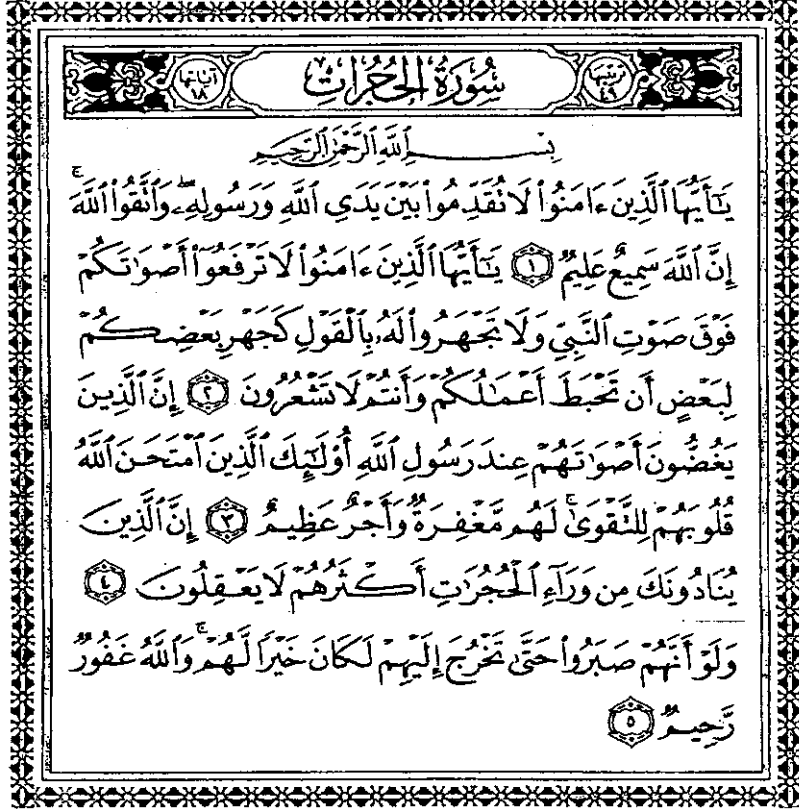 ترتيبها ٤٩ سُورَةُ الحُجُرَاتِ آياتها ١٨
بِسْمِ ٱللَّهِ ٱلرَّحْمَٰنِ ٱلرَّحِيمِ
يَٰٓأَيُّهَا ٱلَّذِينَ ءَامَنُوا۟ لَا تُقَدِّمُوا۟ بَيْنَ يَدَىِ ٱللَّهِ وَرَسُولِهِۦ ۖ وَٱتَّقُوا۟ ٱللَّهَ ۚ
إِنَّ ٱللَّهَ سَمِيعٌ عَلِيمٌ ١ يَٰٓأَيُّهَا ٱلَّذِينَ ءَامَنُوا۟ لَا تَرْفَعُوٓا۟ أَصْوَٰتَكُمْ
فَوْقَ صَوْتِ ٱلنَّبِىِّ وَلَا تَجْهَرُوا۟ لَهُۥ بِٱلْقَوْلِ كَجَهْرِ بَعْضِكُمْ
لِبَعْضٍ أَن تَحْبَطَ أَعْمَٰلُكُمْ وَأَنتُمْ لَا تَشْعُرُونَ ٢ إِنَّ ٱلَّذِينَ
يَغُضُّونَ أَصْوَٰتَهُمْ عِندَ رَسُولِ ٱللَّهِ أُو۟لَٰٓئِكَ ٱلَّذِينَ ٱمْتَحَنَ ٱللَّهُ
قُلُوبَهُمْ لِلتَّقْوَىٰ ۚ لَهُم مَّغْفِرَةٌ وَأَجْرٌ عَظِيمٌ ٣ إِنَّ ٱلَّذِينَ
يُنَادُونَكَ مِن وَرَآءِ ٱلْحُجُرَٰتِ أَكْثَرُهُمْ لَا يَعْقِلُونَ ٤
وَلَوْ أَنَّهُمْ صَبَرُوا۟ حَتَّىٰ تَخْرُجَ إِلَيْهِمْ لَكَانَ خَيْرًا لَّهُمْ ۚ وَٱللَّهُ غَفُورٌ
رَّحِيمٌ ٥